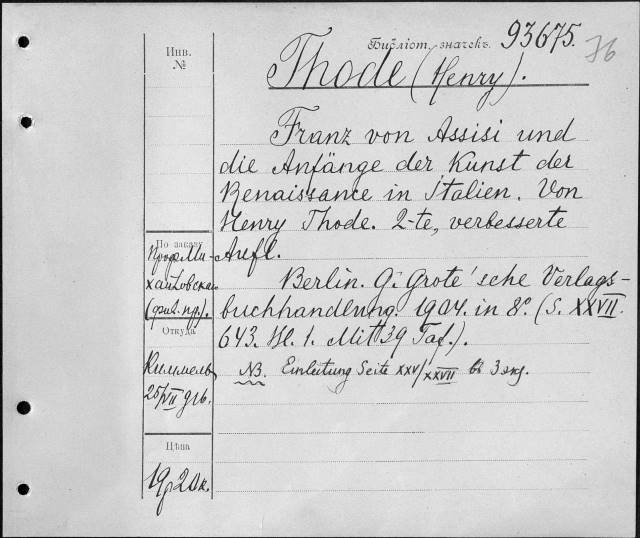 Инв. №
Библіот. значекъ. 93675.
76
Thode (Henry).
Franz von Assisi und
die Anfänge der Kunst der
Renaissance in Italien. Von
Henry Thode. 2-te, verbesserte
Aufl.
Berlin. G. Grote'sche Verlags-
buchhandlung. 1904. in 8° (S. XXVII.
643. Hl. 1. Mit 39 Taf.).
NB. Einleitung Seite XXV/XXVII въ 3 экз.
По заказу
Проф. Ми-
хайловска
Откуда
Киммель
25/VII
Цѣна
19р 20к.